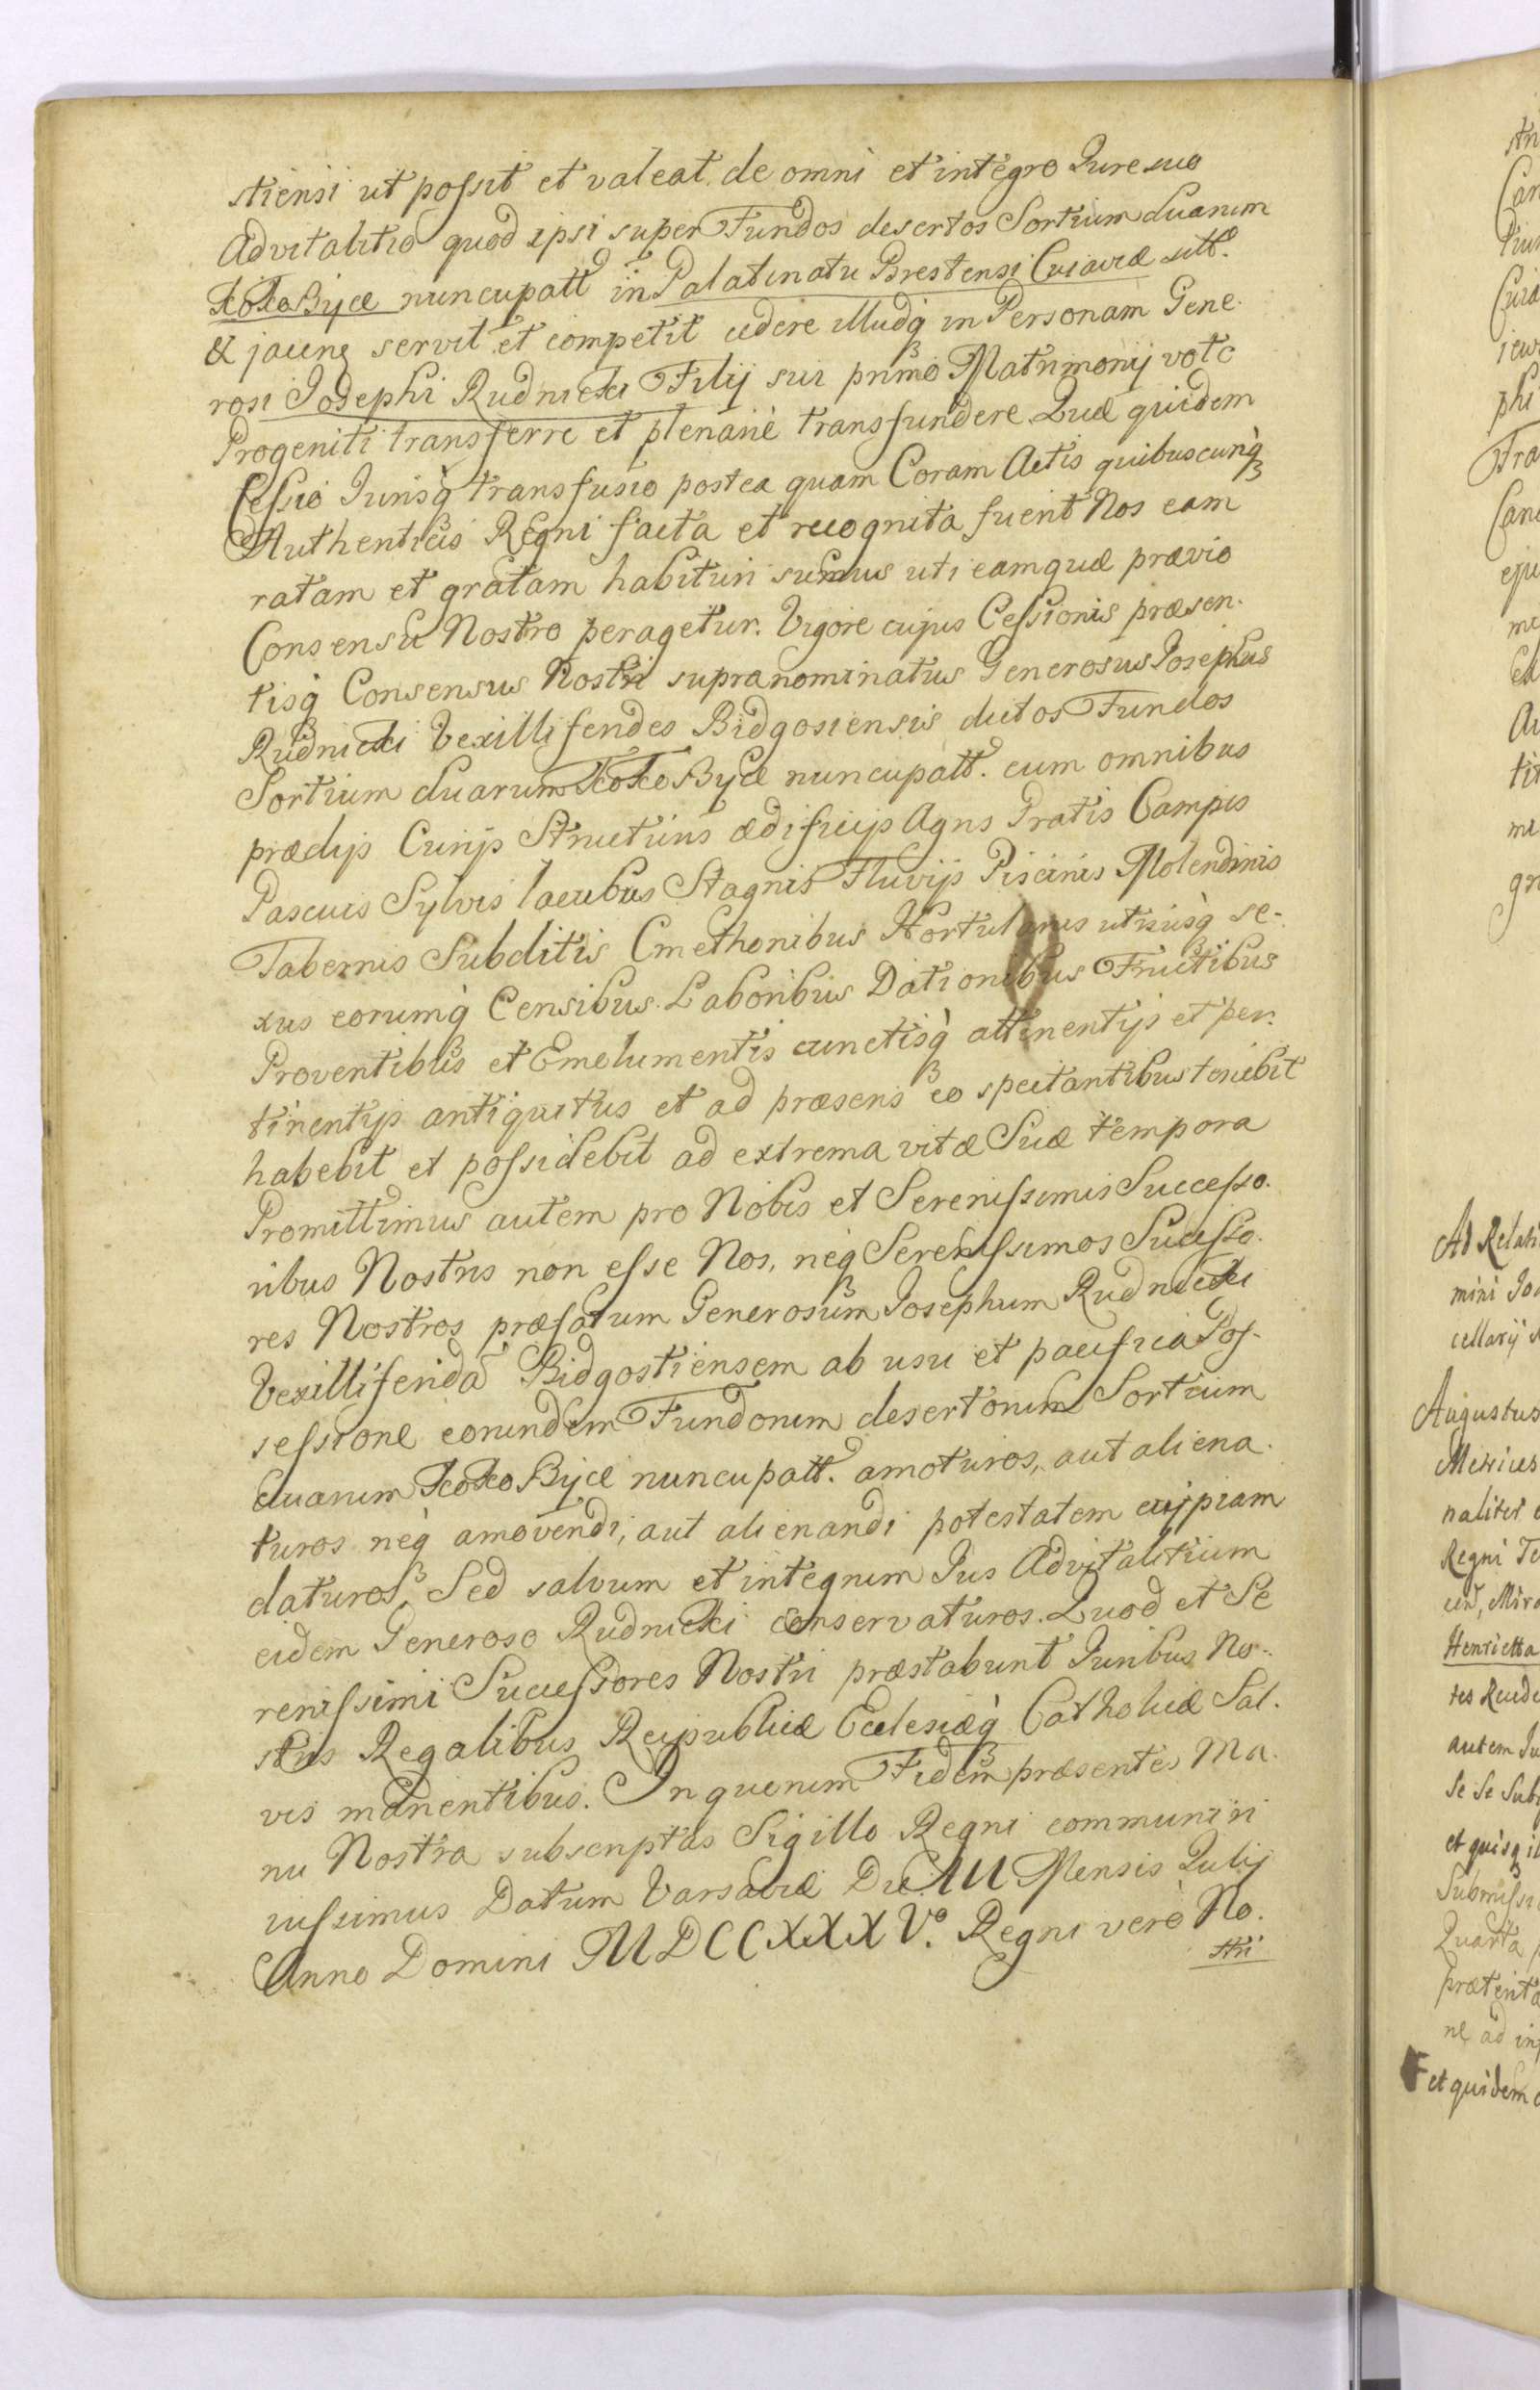 stiensi ut possit et valeat de omni et integro Jure suo
Advitalitio quod ipsi super Fundos desertos Sortium duarum
KoKoByce nuncupatt in Palatinatu Brestensi Cuiaviæ sitt.
& jacenꝫ servit et competit cedere illudqꝫ in Personam Gene-
rosi Josephi Rudnicki Filij sui primo Matrimonij voto
Progeniti transferre et plenarie transfundere Quæ quidem
Cessio Jurisqꝫ transfusio postea quam Coram Actis quibuscunqꝫ
Authenticis Regni facta et recognita fuerit Nos eam
ratam et gratam habituri sumus uti eamquæ prævio
Consensu Nostro peragetur. Vigore cujus Cessionis præsen-
tisqꝫ Consensus Nostri supranominatus Generosus Josephus
Rudnicki Vexillifendes Bidgosiensis dictos Fundos
Sortium duarum KoKoByce nuncupatt. cum omnibus
prædijs Curijs Structuris ædificijs Agris Pratis Campis
Pascuis Sylvis lacubus Stagnis Fluvijs Piscinis Molendinis
Tabernis Subditis Cmethonibus Hortulanis utriusqꝫ se-
xus eorumqꝫ Censibus Laboribus Dationibus Fructibus
Proventibus et Emolumentis cunctisqꝫ attinentijs et per-
tinentijs antiquitus et ad præsens eo spectantibus tenebit
habebit et possidebit ad extrema vitæ Suæ tempora
Promittimus autem pro Nobis et Serenissimis Successo-
ribus Nostris non esse Nos, neqꝫ Serenissimos Successo-
res Nostros præfatum Generosum Josephum Rudnicki
Vexilliferidā Bidgostiensem ab usu et pacifica Pos-
sessione eorundem Fundorum desertorum Sortium
duarum KoKoByce nuncupatt. amoturos, aut aliena-
turos neqꝫ amovendi, aut alienandi potestatem cuipiam
daturos. Sed salvum et integrum Jus Advitalitium
eidem Generoso Rudnicki conservaturos. Quod et Se
renissimi Successores Nostri præstabunt Juribus No-
stris Regalibus Reipublicæ Ecclesiæqꝫ Catholicæ Sal-
vis manentibus. In quorum Fidem præsentes Ma-
nu Nostra subscriptas Sigillo Regni communiri
iussimus Datum Varsaviæ Die III Mensis Julij
Anno Domini MDCCXXXVº. Regni vero No-
stri
Ad Relati
mini Jo
cellarij
Augustus
Mexices
naliter
Regni Te
Henrietta
autem Ju
Se Se Sub
et quisqꝫ
Submissi
Quarta
prætenta
ne ad in
et quidem